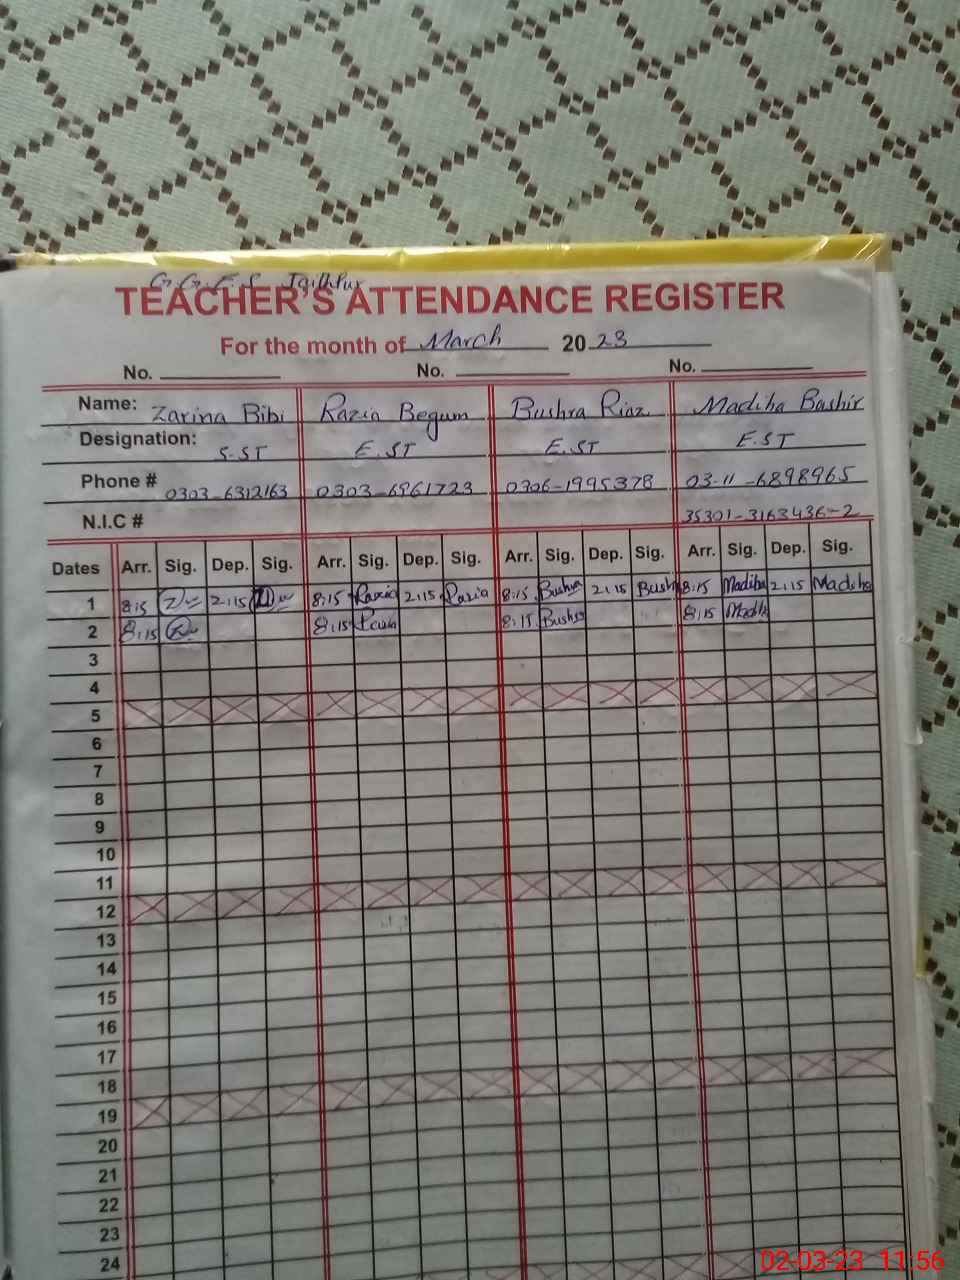 G.G.E.S Jgithpur
TEACHER'S ATTENDANCE REGISTER
For the month of March 2023
No. No. No.
Name: Zarina Bibi Razia Begum Bushra Riaz Madiha Bashir
Designation: S.ST E.ST E.ST E.ST
Phone # 0303-6312163 0303-6961723 0306-1995378 03-11-6898965
N.I.C # 35301-3163436-2
Dates Arr. Sig. Dep. Sig. Arr. Sig. Dep. Sig. Arr. Sig. Dep. Sig. Arr. Sig. Dep. Sig.
1 8:15 2:15 8:15 Razia 2:15 Razia 8:15 Bushra 2:15 Bush 8:15 Madiha 2:15 Madiha
2 8:15 8:15 8:15 Bushra 8:15
3
4
5
6
7
8
9
10
11
12
13
14
15
16
17
18
19
20
21
22
23
24
02-03-23 11:56